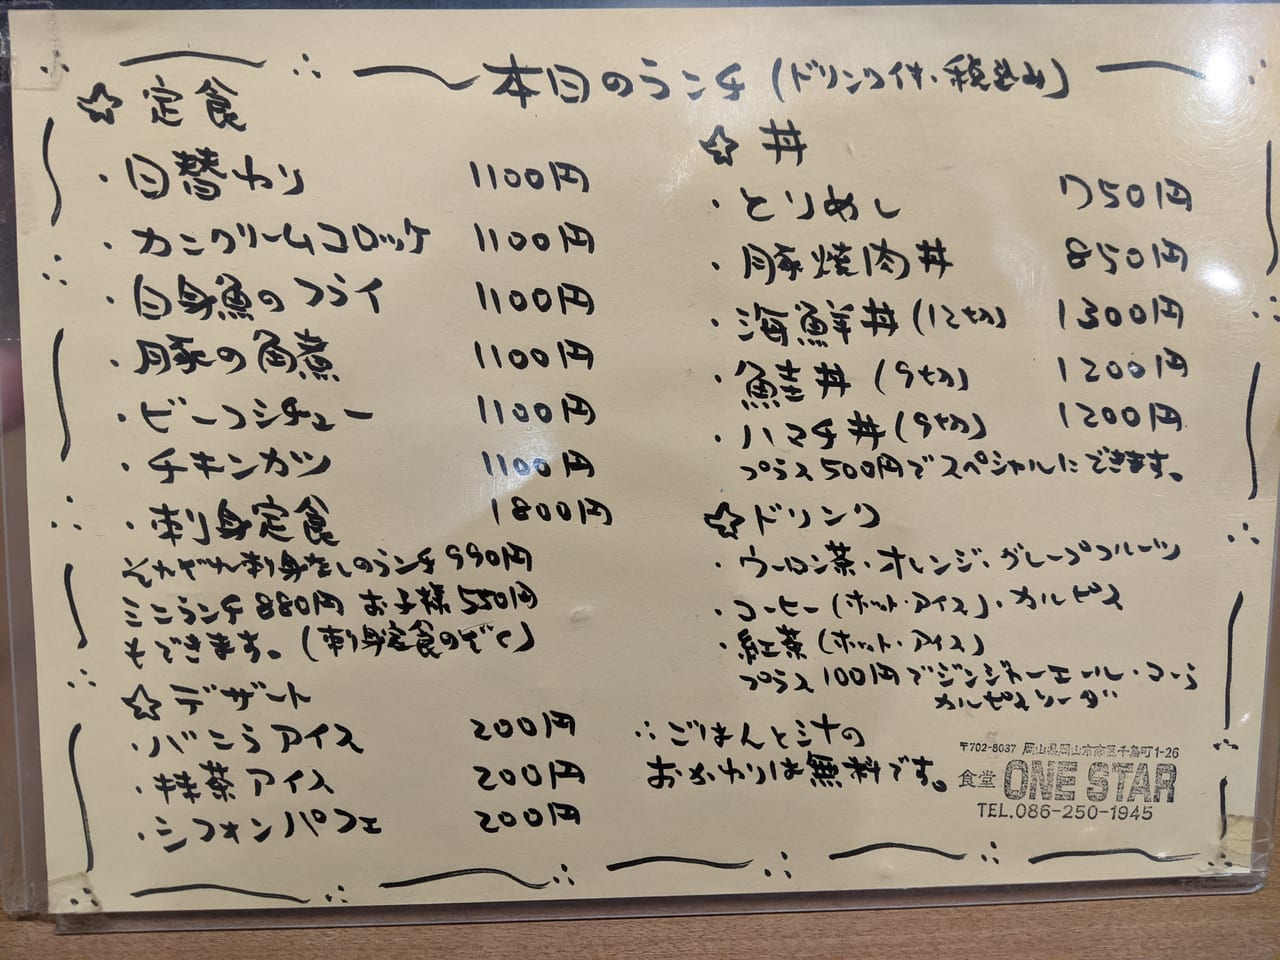 本日のランチ (ドリンク付・税込み)
☆ 定食
・日替わり 1100円
・カニクリームコロッケ 1100円
・白身魚のフライ 1100円
・豚の角煮 1100円
・ビーフシチュー 1100円
・チキンカツ 1100円
・刺身定食 1800円
それぞれ刺身なしのランチ 990円
ミニランチ 880円 お子様 550円
もできます。(刺身定食のぞく)
☆ デザート
・バニラアイス 200円
・抹茶アイス 200円
・シフォンパフェ 200円
☆ 丼
・とりめし 750円
・豚焼肉丼 850円
・海鮮丼 (12切) 1300円
・鮭丼 (9切) 1200円
・ハマチ丼 (9切) 1200円
プラス500円でスペシャルにできます。
☆ ドリンク
・ウーロン茶・オレンジ・グレープフルーツ
・コーヒー (ホット・アイス)・カルピス
・紅茶 (ホット・アイス)
プラス 100円でジンジャーエール・コーラ
カルピスソーダ
∴ごはんと汁の
おかわりは無料です。
〒702-8037 岡山県岡山市南区千鳥町1-26
食堂 ONE STAR
TEL.086-250-1945